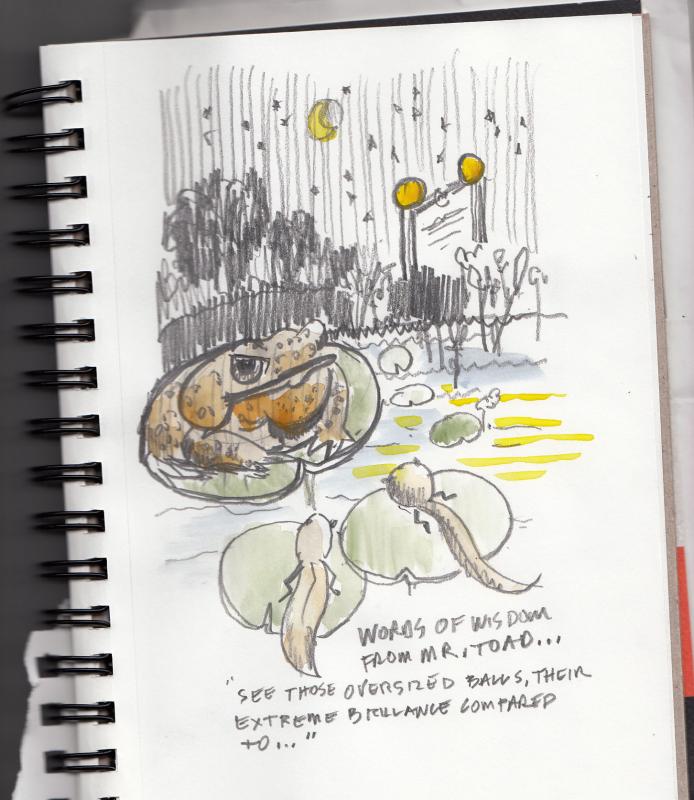 WORDS OF WISDOM
FROM MR. TOAD...
"SEE THOSE OVERSIZED BALLS, THEIR
EXTREME BRILLANCE COMPARED
TO..."